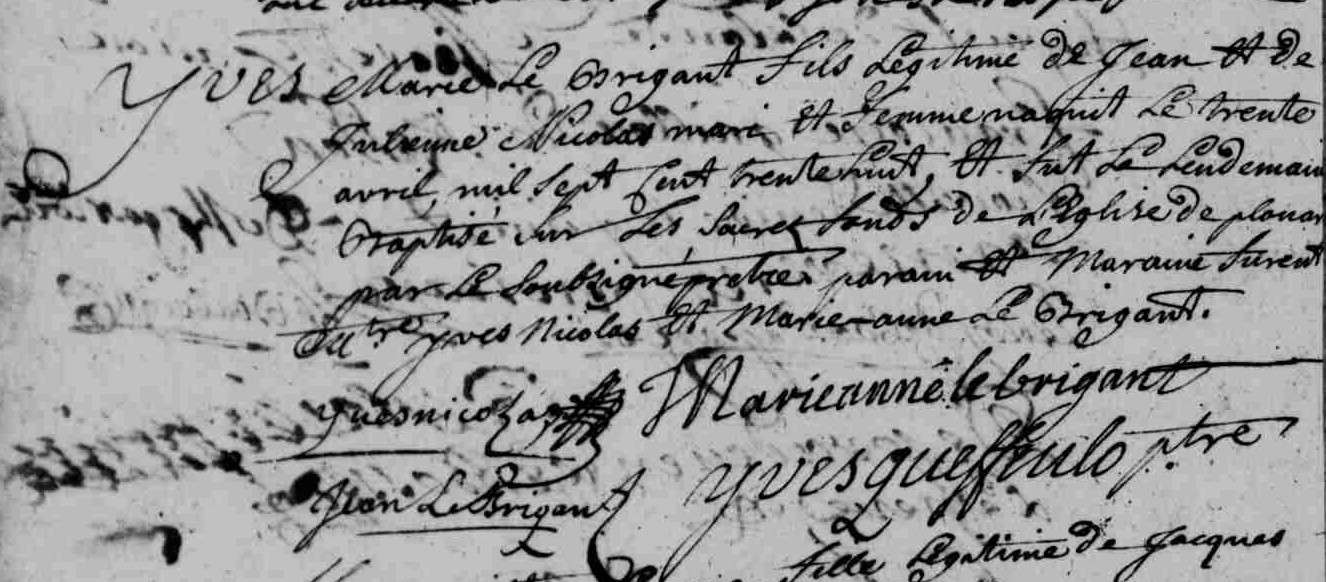 Yves Marie Le Brigant fils Legitime de Jean et de
Julienne Nicolas mari et femme naquit Le trente
avril, mil sept cent trente huit, et fut Le Lendemain
Baptisé sur Les sacres fonds de L'Eglise de
par Le soubsigné pretre, parain et Maraine furent
Yves Nicolas et Marie-anne Le Brigant.
yvesnicolas Marieanne le brigant
Yves queffeulo ptre
Jean Le Brigant
fille Legitime de Jacques